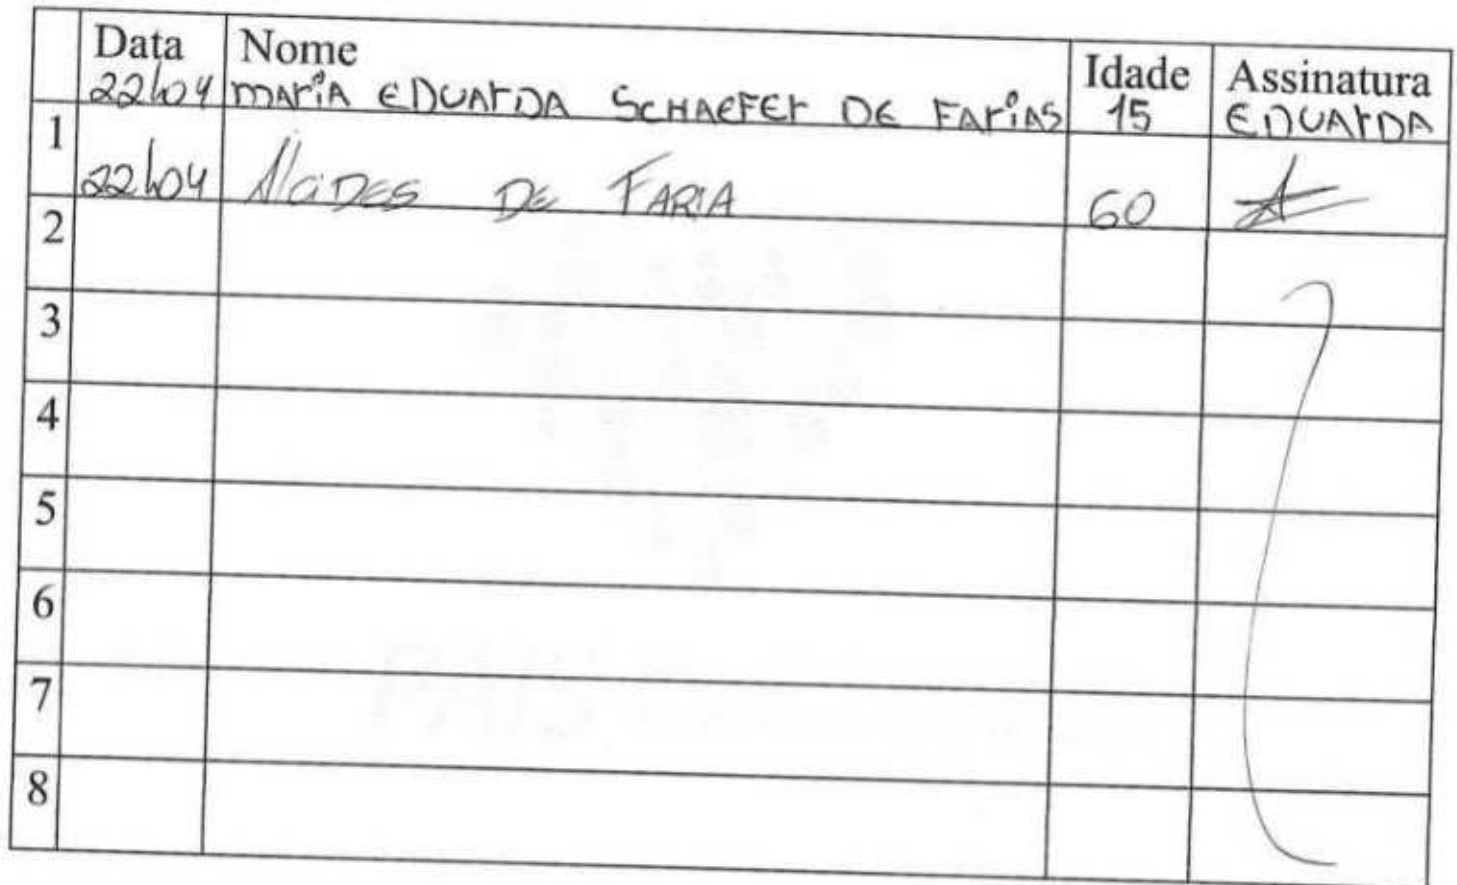 Data Nome Idade Assinatura
22/04 MARIA EDUARDA SCHAEFER DE FARIAS 15 EDUARDA
1
22/04 Alcides DE FARIA 60
2
3
4
5
6
7
8